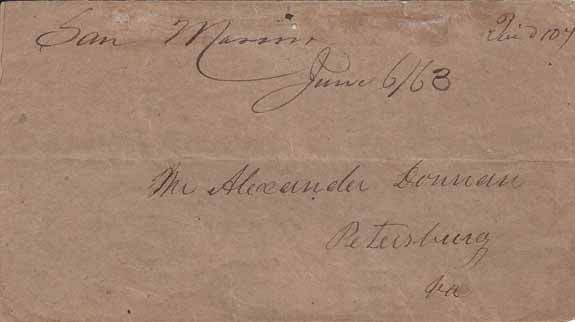 San Marino Paid 10
June 6/63
Mr Alexander Donnan
Petersburg
Va